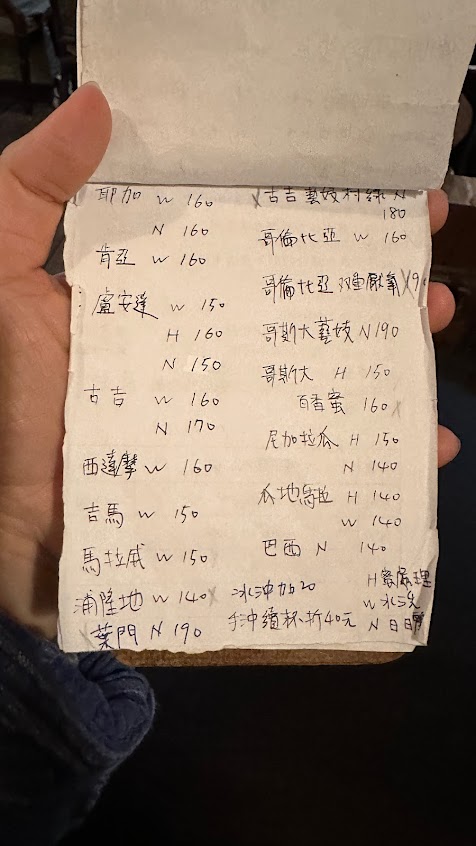 耶加 W 160
N 160
肯亞 W 160
盧安達 W 150
H 160
N 150
古吉 W 160
N 170
西達摩 W 160
吉馬 W 150
馬拉威 W 150
浦隆地 W 140 X
X 葉門 N 190
X 古吉藝妓村綠 N
180
哥倫比亞 W 160
哥倫比亞 双重厭氧 X 90
哥斯大藝妓 N 190
哥斯大 H 150
百香蜜 160 X
尼加拉瓜 H 150
N 140
瓜地馬拉 H 140
W 140
巴西 N 140
冰沖加20
手沖續杯折40元
H 蜜處理
W 水洗
N 日曬